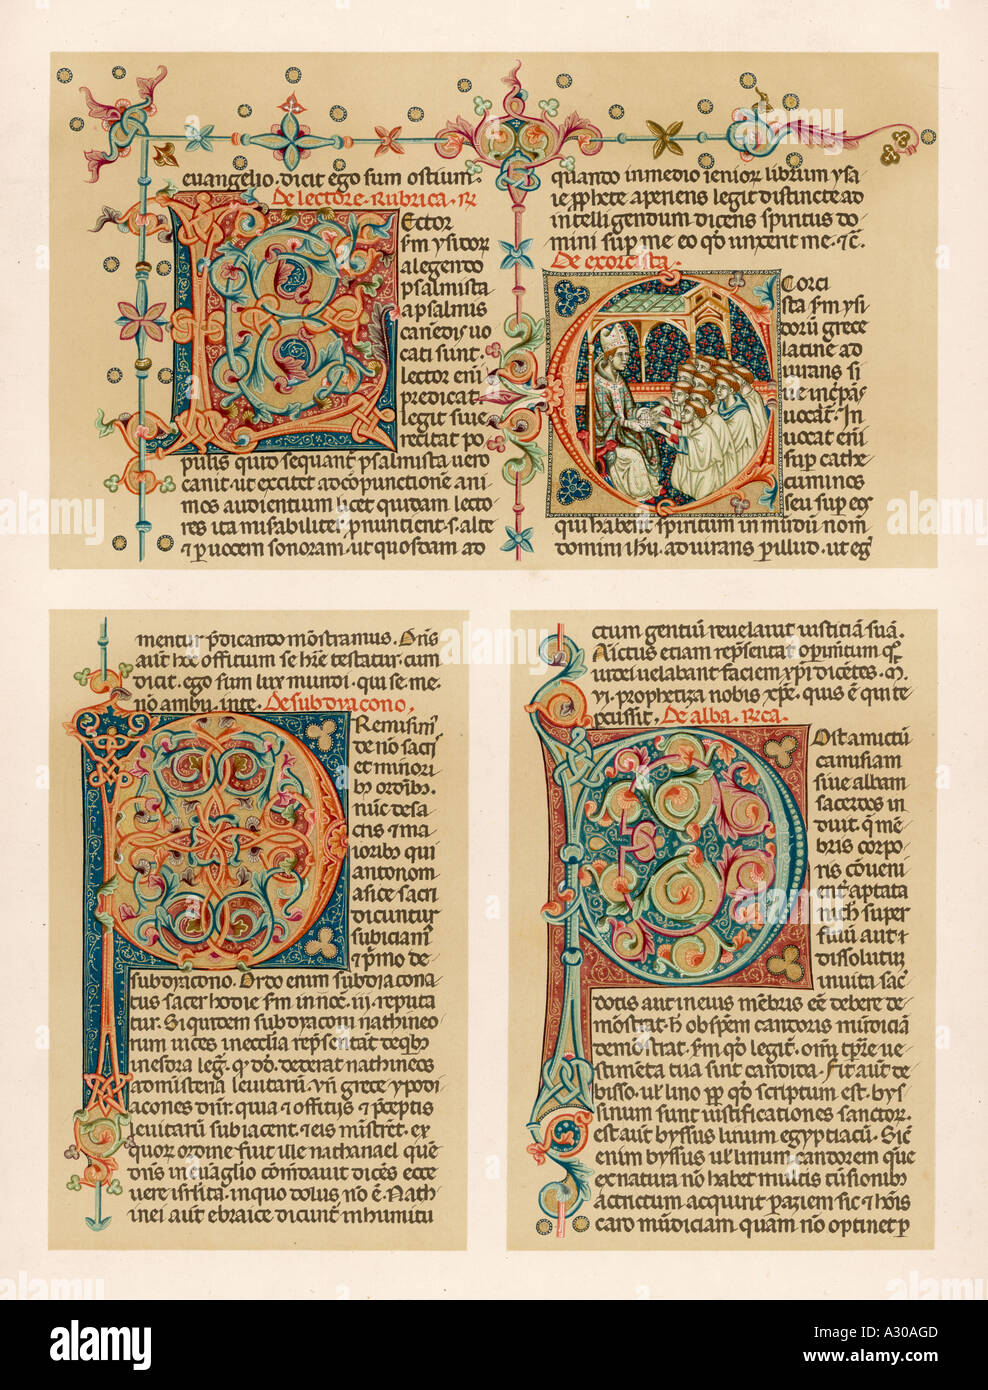 euangelio . dicit ego sum ostium .
De lectore . Rubrica .
Ector
sm ysidor
a legendo
psalmista
a psalmis
canēdis uo
cati sunt .
lector eni
predicat
legit siue
recitat po
pulis quid sequant psalmista uero
canit . ut excitet ad cōpunctione ani
mos audientium licet quidam lecto
res ita misabilitei pnuntient .s. alte
⁊ p uocem sonoram . ut quosdam ad
quando in medio senior librum ysa
ie pphete aperiens legit distincte ad
intelligendum dicens spiritus do
mini sup me eo qđ unxerit me . ⁊c̄ .
De exorcista .
Xorci
sta sm ysi
dorū grece
latine ad
iurans si
ue incpās
uocat . In
uocat eni
sup cathe
cuminos
seu sup eos
qui habent spiritum in mūdū nom̄
domini ihū . ad iurans p illud . ut eg̃
mentur pdicando mōstramus . Dn̄s
aut hoc officium se hīe testatur . cum
dicit . ego sum lux mundi . qui se . me .
nō ambu . inte . De subdyacono ,
Remissim
de nō sacri
et minori
bȝ ordibȝ .
nūc de sa
cris ⁊ ma
ioribȝ qui
antonom
asice sacri
dicuntur
subiciam
⁊ pīmo de
subdyacono . Ordo enim subdyacona
tus sacer hodie sm innoc̄ . iii . reputa
tur . Si quidem subdyaconi nathineo
rum uices in ecclia repsentāt de qbȝ
in esdra leg̃ . qd dederat nathineos
ad misteria leuitarū . Vn̄ grece ypodi
acones dnr̄ . quia ⁊ offitiis ⁊ pceptis
leuitarū subiacent . ⁊ eis mistrēt . ex
quoȝ ordine fuit ille nathanael quē
dn̄s in euāglio cōmdauit dicēs ecce
uere isrlita . in quo dolus nō ē . Nath
inei aut ebraice dicunt in humilitu
ctum gentiū reuelauit iustitiā suā .
Amictus etiam repsentat opimētum qȝ
iudei uelabant faciem xpi dicētes . M .
xvi . prophetiza nobis xpe . quis ē qui te
pcussit . De alba . Rca .
Ost amictū
camisiam
siue albam
sacerdos in
duit . q mē
bris corpo
ris cōueni
enter aptata
nich super
fluū aut
dissolutū
in uita sac̄
dotis aut in eius mēbris eē debere de
mōstrat . h ob spēm candoris mūdiciā
demostrat . sm qđ legit . omi tpre ue
stimēta tua sint candida . Fit aut de
bisso . ul lino pp qđ scriptum est . bys
sinum sunt iustificationes sanctoȝ .
est aut byssus linum egyptiacū . Sic̄
enim byssus ul linum candorem que
ex natura nō habet multis tūsionibȝ
actrictum acquirit p aziem sic ⁊ hōis
caro mūdiciam quam nō optinet p
alamy
Image ID: A30AGD
www.alamy.com